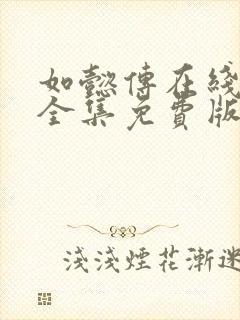 如懿傳在綫
全集免費版
淺淺煙花漸迷